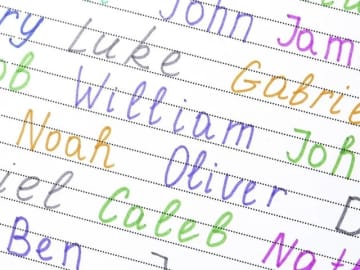 ry John Jam
Luke Gabrie
ob William Joh
Noah Oliver D
iel Caleb Nat
Ben